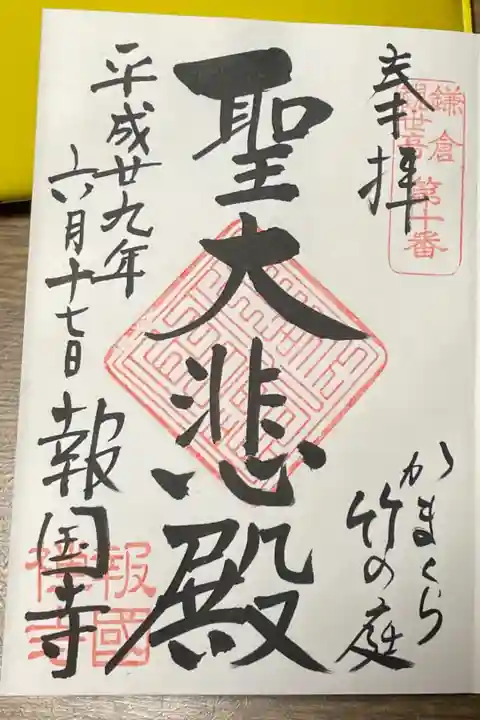 奉拝
鎌倉
観世音
第十番
かまくら
竹の庭
聖大悲殿
平成廿九年
六月十七日
報国寺
報國
禅寺